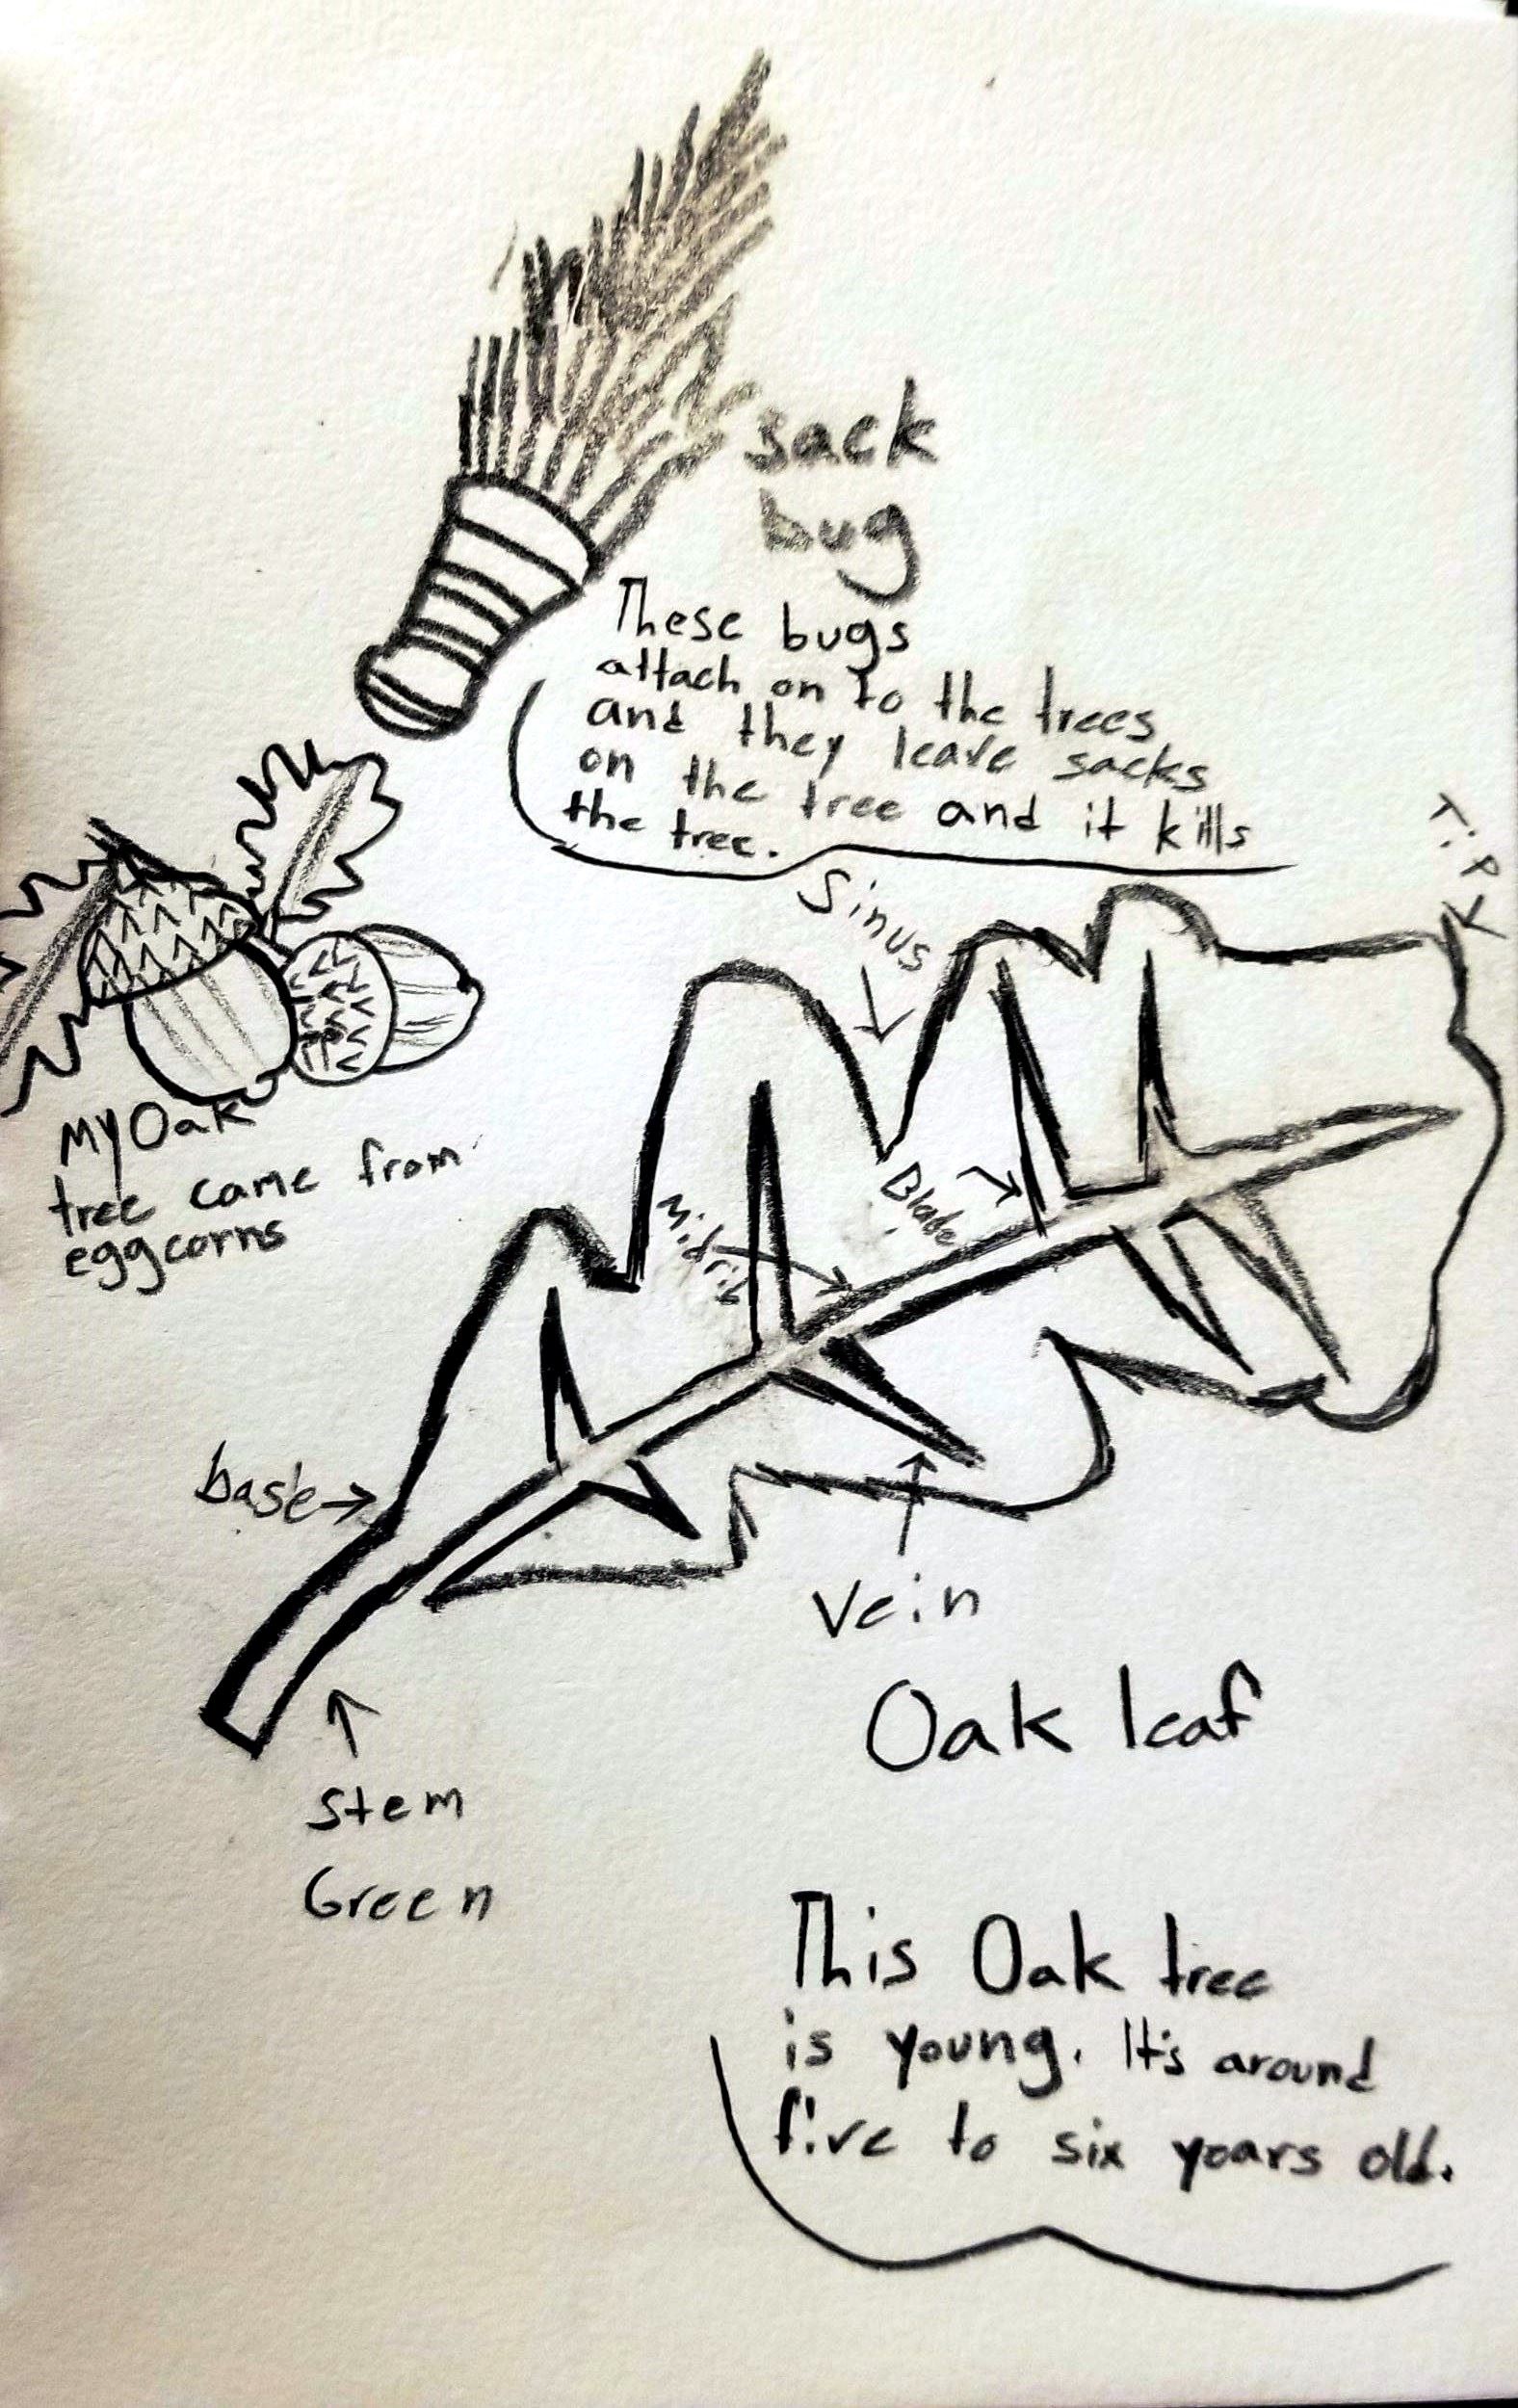 sack
bug
These bugs
attach on to the trees
and they leave sacks
on the tree and it kills
the tree.
Tip
Sinus
My Oak
tree came from
eggcorns
Blade
Midrib
base
Vein
Oak leaf
Stem
Green
This Oak tree
is young. It's around
five to six yoars old.